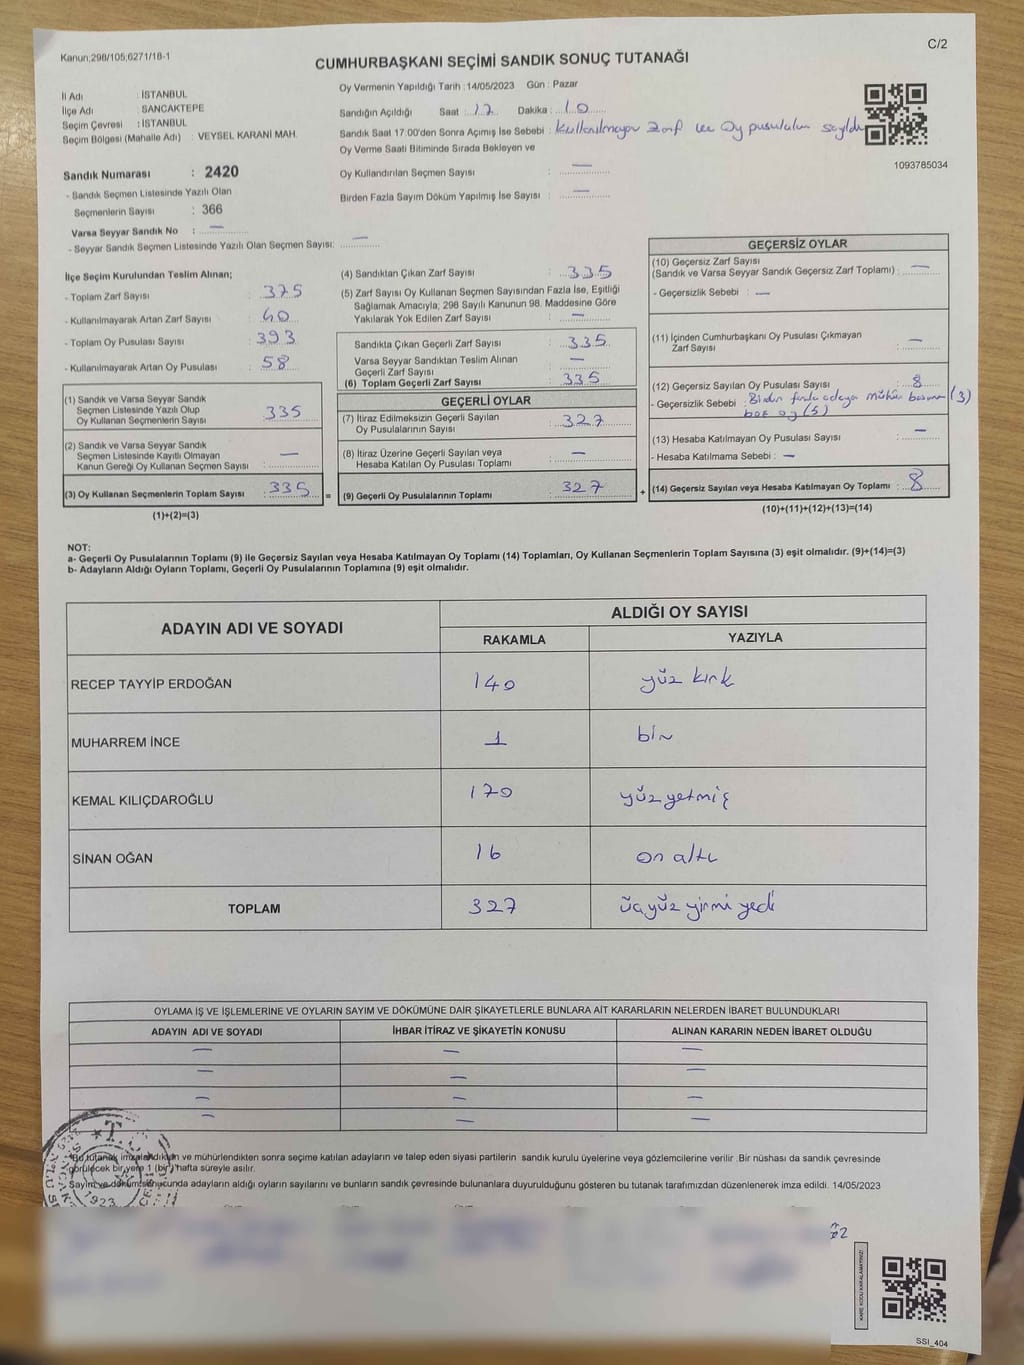 Kanun;298/105;6271/18-1
C/2
CUMHURBAŞKANI SEÇİMİ SANDIK SONUÇ TUTANAĞI
İl Adı : İSTANBUL
İlçe Adı : SANCAKTEPE
Seçim Çevresi : İSTANBUL
Seçim Bölgesi (Mahalle Adı) : VEYSEL KARANİ MAH.
Oy Vermenin Yapıldığı Tarih :14/05/2023 Gün : Pazar
Sandığın Açıldığı Saat : 17 Dakika : 10
Sandık Saat 17:00'den Sonra Açımış İse Sebebi : Kullanılmayan zarf ve oy pusulaları sayıldı
Oy Verme Saati Bitiminde Sırada Bekleyen ve
Oy Kullandırılan Seçmen Sayısı : —
Birden Fazla Sayım Döküm Yapılmış İse Sayısı : —
1093785034
Sandık Numarası : 2420
- Sandık Seçmen Listesinde Yazılı Olan
Seçmenlerin Sayısı : 366
Varsa Seyyar Sandık No : —
- Seyyar Sandık Seçmen Listesinde Yazılı Olan Seçmen Sayısı: —
İlçe Seçim Kurulundan Teslim Alınan;
- Toplam Zarf Sayısı : 375
- Kullanılmayarak Artan Zarf Sayısı : 40
- Toplam Oy Pusulası Sayısı : 393
- Kullanılmayarak Artan Oy Pusulası : 58
(1) Sandık ve Varsa Seyyar Sandık
Seçmen Listesinde Yazılı Olup
Oy Kullanan Seçmenlerin Sayısı : 335
(2) Sandık ve Varsa Seyyar Sandık
Seçmen Listesinde Kayıtlı Olmayan
Kanun Gereği Oy Kullanan Seçmen Sayısı : —
(3) Oy Kullanan Seçmenlerin Toplam Sayısı : 335
(1)+(2)=(3)
(4) Sandıktan Çıkan Zarf Sayısı : 335
(5) Zarf Sayısı Oy Kullanan Seçmen Sayısından Fazla İse, Eşitliği
Sağlamak Amacıyla; 298 Sayılı Kanunun 98. Maddesine Göre
Yakılarak Yok Edilen Zarf Sayısı : —
Sandıkta Çıkan Geçerli Zarf Sayısı : 335
Varsa Seyyar Sandıktan Teslim Alınan
Geçerli Zarf Sayısı : —
(6) Toplam Geçerli Zarf Sayısı : 335
GEÇERLİ OYLAR
(7) İtiraz Edilmeksizin Geçerli Sayılan
Oy Pusulalarının Sayısı : 327
(8) İtiraz Üzerine Geçerli Sayılan veya
Hesaba Katılan Oy Pusulası Toplamı : —
= (9) Geçerli Oy Pusulalarının Toplamı : 327
GEÇERSİZ OYLAR
(10) Geçersiz Zarf Sayısı
(Sandık ve Varsa Seyyar Sandık Geçersiz Zarf Toplamı) : —
- Geçersizlik Sebebi : —
(11) İçinden Cumhurbaşkanı Oy Pusulası Çıkmayan
Zarf Sayısı : —
(12) Geçersiz Sayılan Oy Pusulası Sayısı : 8
- Geçersizlik Sebebi : Birden fazla adaya mühür basımı (3)
boş oy (5)
(13) Hesaba Katılmayan Oy Pusulası Sayısı : —
- Hesaba Katılmama Sebebi : —
+ (14) Geçersiz Sayılan veya Hesaba Katılmayan Oy Toplamı : 8
(10)+(11)+(12)+(13)=(14)
NOT:
a- Geçerli Oy Pusulalarının Toplamı (9) ile Geçersiz Sayılan veya Hesaba Katılmayan Oy Toplamı (14) Toplamları, Oy Kullanan Seçmenlerin Toplam Sayısına (3) eşit olmalıdır. (9)+(14)=(3)
b- Adayların Aldığı Oyların Toplamı, Geçerli Oy Pusulalarının Toplamına (9) eşit olmalıdır.
ADAYIN ADI VE SOYADI ALDIĞI OY SAYISI
RAKAMLA YAZIYLA
RECEP TAYYİP ERDOĞAN 140 yüz kırk
MUHARREM İNCE 1 bir
KEMAL KILIÇDAROĞLU 170 yüz yetmiş
SİNAN OĞAN 16 on altı
TOPLAM 327 üçyüz yirmi yedi
OYLAMA İŞ VE İŞLEMLERİNE VE OYLARIN SAYIM VE DÖKÜMÜNE DAİR ŞİKAYETLERLE BUNLARA AİT KARARLARIN NELERDEN İBARET BULUNDUKLARI
ADAYIN ADI VE SOYADI İHBAR İTİRAZ VE ŞİKAYETİN KONUSU ALINAN KARARIN NEDEN İBARET OLDUĞU
— — —
— — —
— — —
— — —
Bu tutanak imzalandıktan ve mühürlendikten sonra seçime katılan adayların ve talep eden siyasi partilerin sandık kurulu üyelerine veya gözlemcilerine verilir .Bir nüshası da sandık çevresinde
görülecek bir yere 1 (bir) hafta süreyle asılır.
Sayım ve döküm sonucunda adayların aldığı oyların sayılarını ve bunların sandık çevresinde bulunanlara duyurulduğunu gösteren bu tutanak tarafımızdan düzenlenerek imza edildi. 14/05/2023
1923
KARE KODU KARALAMAYINIZ!
SSI_404